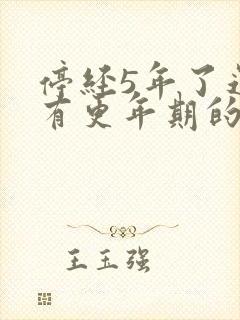 停经5年了还
有更年期的
王玉强